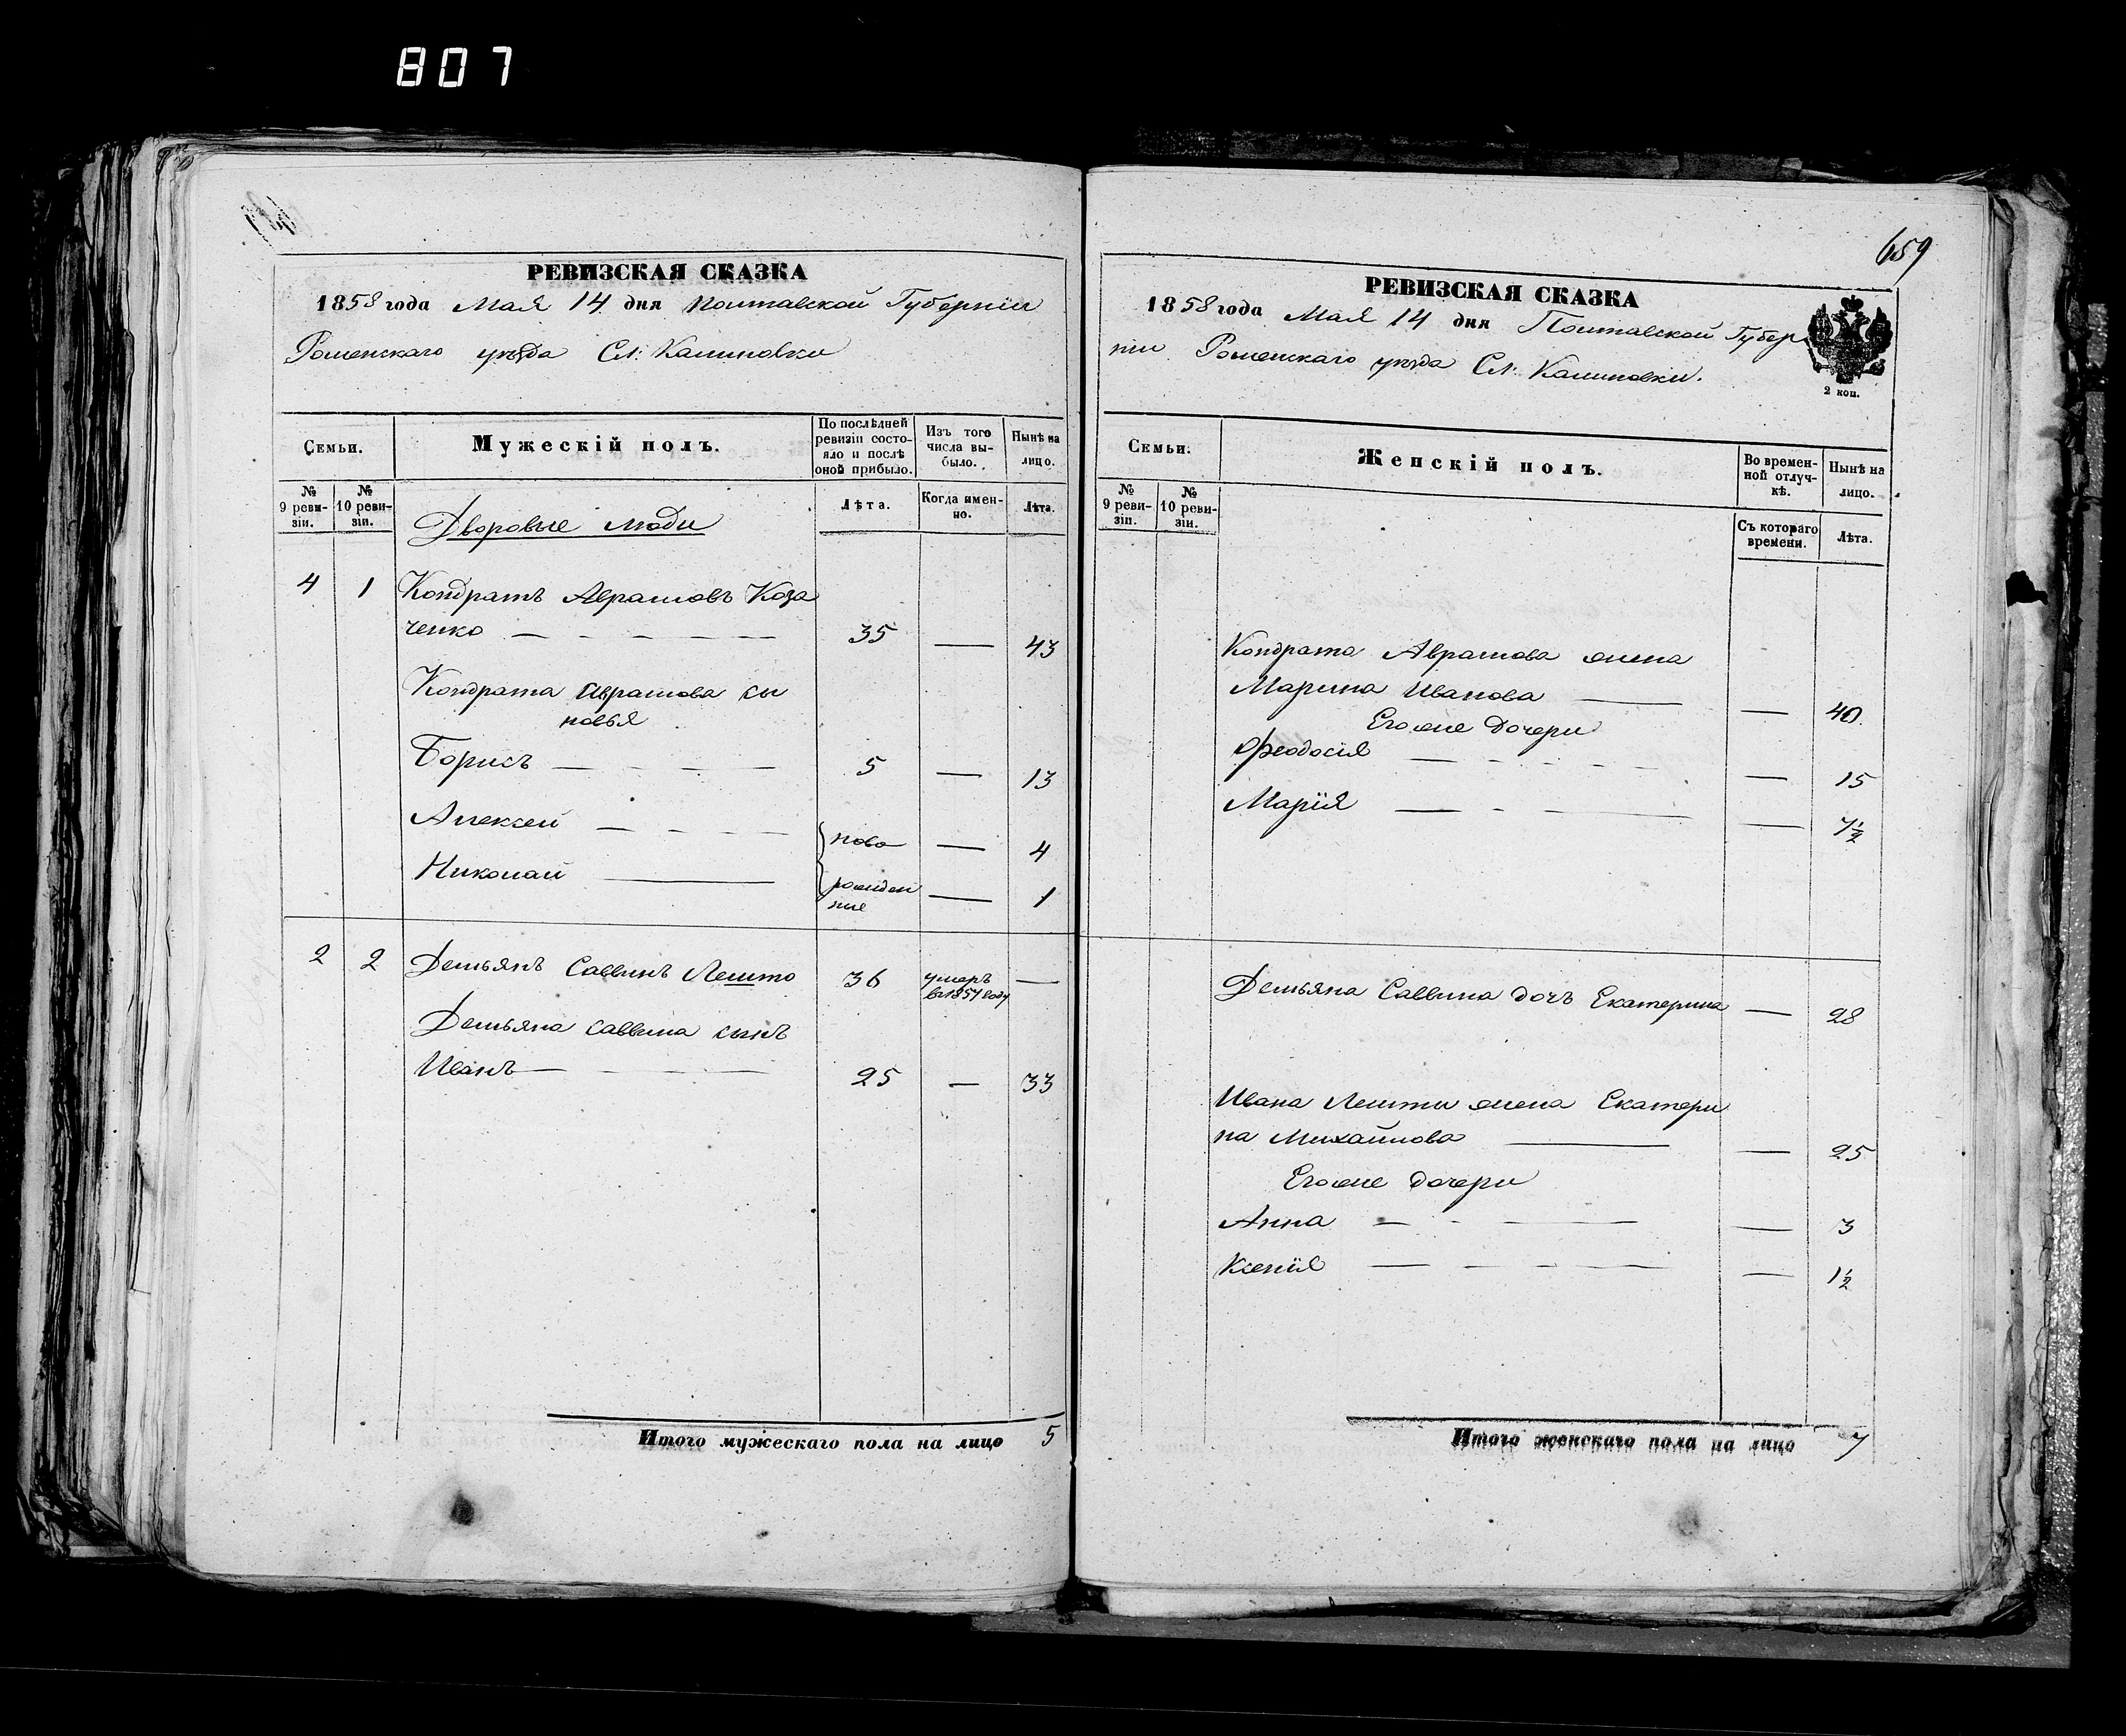 807
РЕВИЗСКАЯ СКАЗКА
1858 года Мая 14 дня Полтавской Губерніи
Роменскаго уѣзда Сл: Калиновки
Семьи.
Мужескій полъ.
По послѣдней ревизіи состояло и послѣ оной прибыло.
Изъ того числа выбыло.
Нынѣ на лицо.
№ 9 ревизіи.
№ 10 ревизіи.
Дворовые люди
Лѣта.
Когда именно.
Лѣта.
4 1 Кондратъ Аврамовъ Коза
ченко — 35 — 43
Кондрата Аврамова сы
новья
Борисъ — 5 — 13
Алексей — ново — 4
Николай — рожден
ные — 1
2 2 Демьянъ Саввинъ Лешто 36 умеръ —
въ 1857 году
Демьяна Саввина сынъ
Иванъ — 25 — 33
Итого мужескаго пола на лицо 5
659
РЕВИЗСКАЯ СКАЗКА
1858 года Мая 14 дня Полтавской Губер
ніи Роменскаго уѣзда Сл: Калиновки.
2 коп.
Семьи.
Женскій полъ.
Во временной отлучкѣ.
Нынѣ на лицо.
№ 9 ревизіи.
№ 10 ревизіи.
Съ котораго времени.
Лѣта.
Кондрата Аврамова жена
Марина Иванова — — 40
Его же дочери
Феодосія — — 15
Марія — — 7½
Демьяна Саввина дочь Екатерина — 28
Ивана Лешты жена Екатери
на Михайлова — — 25
Его же дочери
Анна — — 3
Ксенія — — 1½
Итого женскаго пола на лицо 7